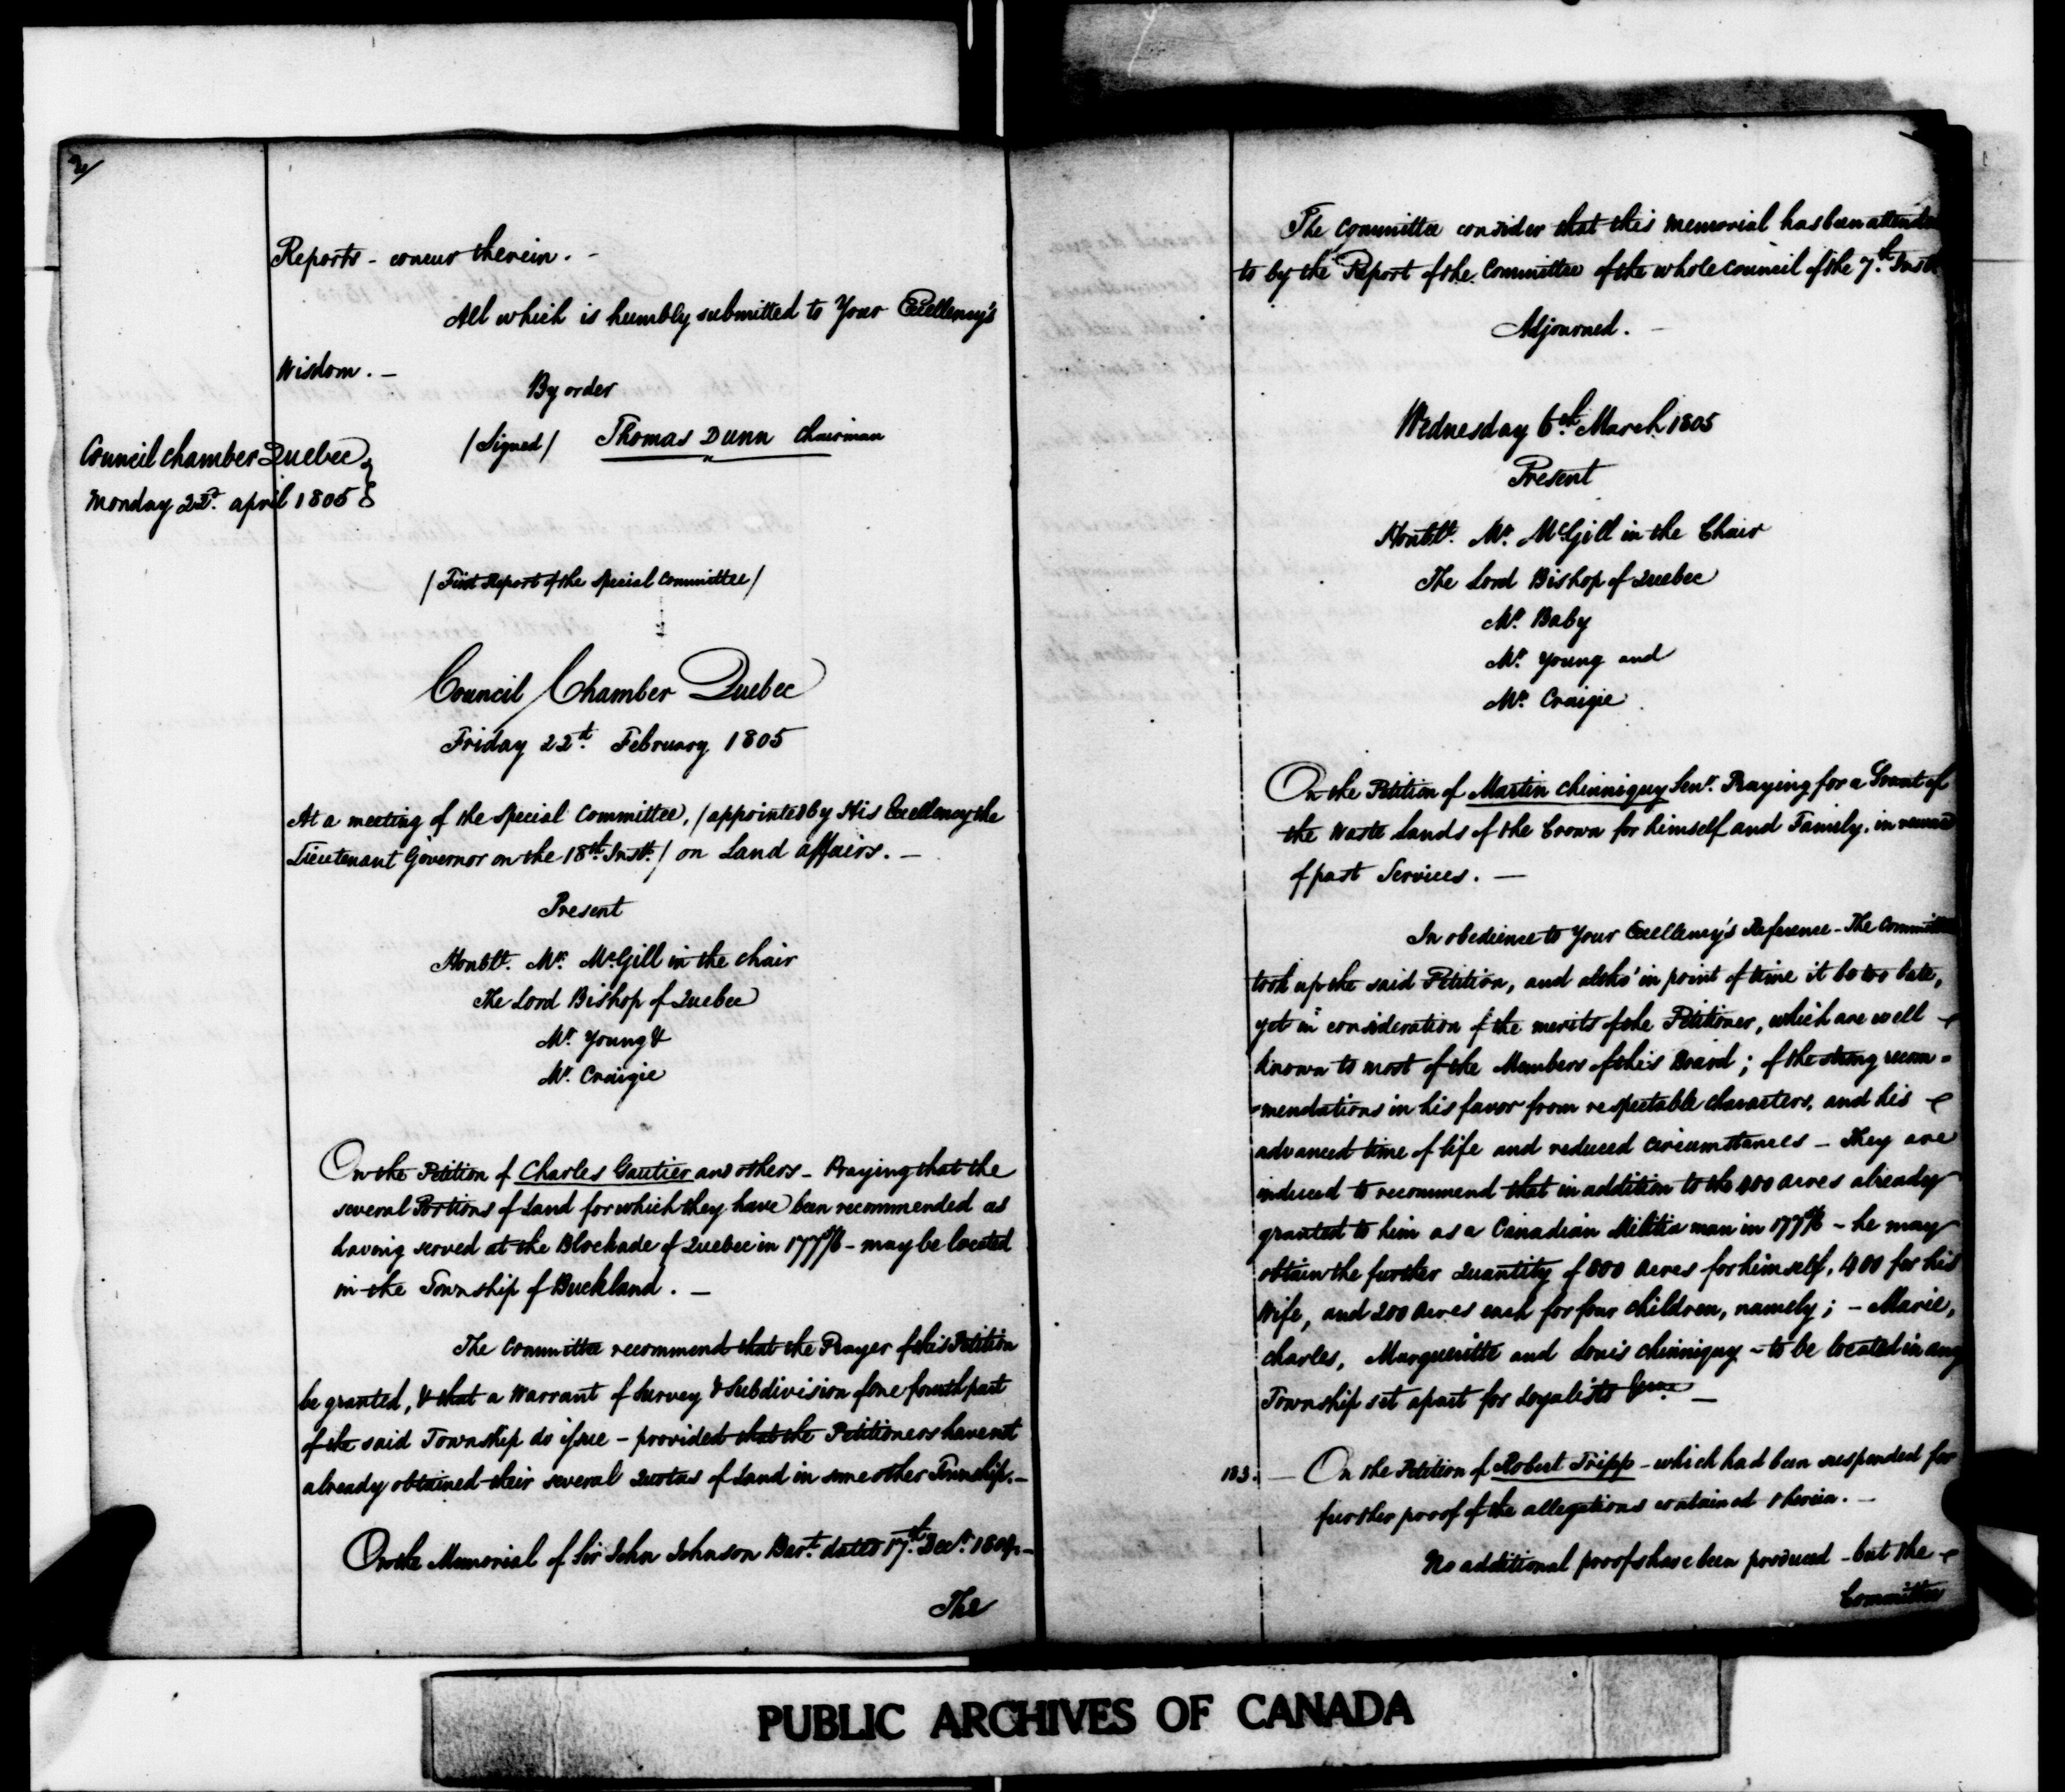 2/
Reports - concur therein. -
All which is humbly submitted to Your Excellency's
Wisdom. -
By order
/Signed/ Thomas Dunn Chairman
Council Chamber Quebec
Monday 22d. april 1805
/First Report of the Special Committee/
Council Chamber Quebec
Friday 22d. February 1805
At a meeting of the Special Committee, /appointed by His Excellency the
Lieutenant Governor on the 18th. Inst./ on Land affairs. -
Present
Honble. Mr. McGill in the chair
The Lord Bishop of Quebec
Mr. Young &
Mr. Craigie
On the Petition of Charles Gautier and others - Praying that the
several Portions of Land for which they have been recommended as
having served at the Blockade of Quebec in 1775/6 - may be located
in the Township of Buckland. -
The Committee recommend that the Prayer of this Petition
be granted, & that a Warrant of Survey & Subdivision of one fourth part
of the said Township do issue - provided that the Petitioners have not
already obtained their several Quotas of Land in some other Township. -
On the Memorial of Sir John Johnson Bart. dated 17th. Decr. 1804. -
The
The Committee consider that this memorial has been attended
to by the Report of the Committee of the whole Council of the 7th. Inst.
Adjourned. -
Wednesday 6th. March 1805
Present
Honble. Mr. McGill in the Chair
The Lord Bishop of Quebec
Mr. Baby
Mr. Young and
Mr. Craigie
On the Petition of Martin Chinniquy Senr. Praying for a Grant of
the Waste Lands of the Crown for himself and Family, in reward
of past Services. -
In obedience to Your Excellency's Reference - The Committee
took up the said Petition, and altho' in point of time it be too late,
yet in consideration of the merits of the Petitioner, which are well
known to most of the Members of this Board; of the strong recom-
-mendations in his favor from respectable characters, and his
advanced time of life and reduced circumstances - They are
induced to recommend that in addition to the 400 acres already
granted to him as a Canadian Militia man in 1775/6 - he may
obtain the further Quantity of 800 acres for himself, 400 for his
Wife, and 200 acres each for four children, namely; - Marie,
Charles, Margueritte and Louis Chinniquy - to be located in any
Township set apart for Loyalists -
103. - On the Petition of Robert Tripp - which had been suspended for
further proof of the allegations contained therein. -
No additional proofs have been produced - but the
Committee
PUBLIC ARCHIVES OF CANADA